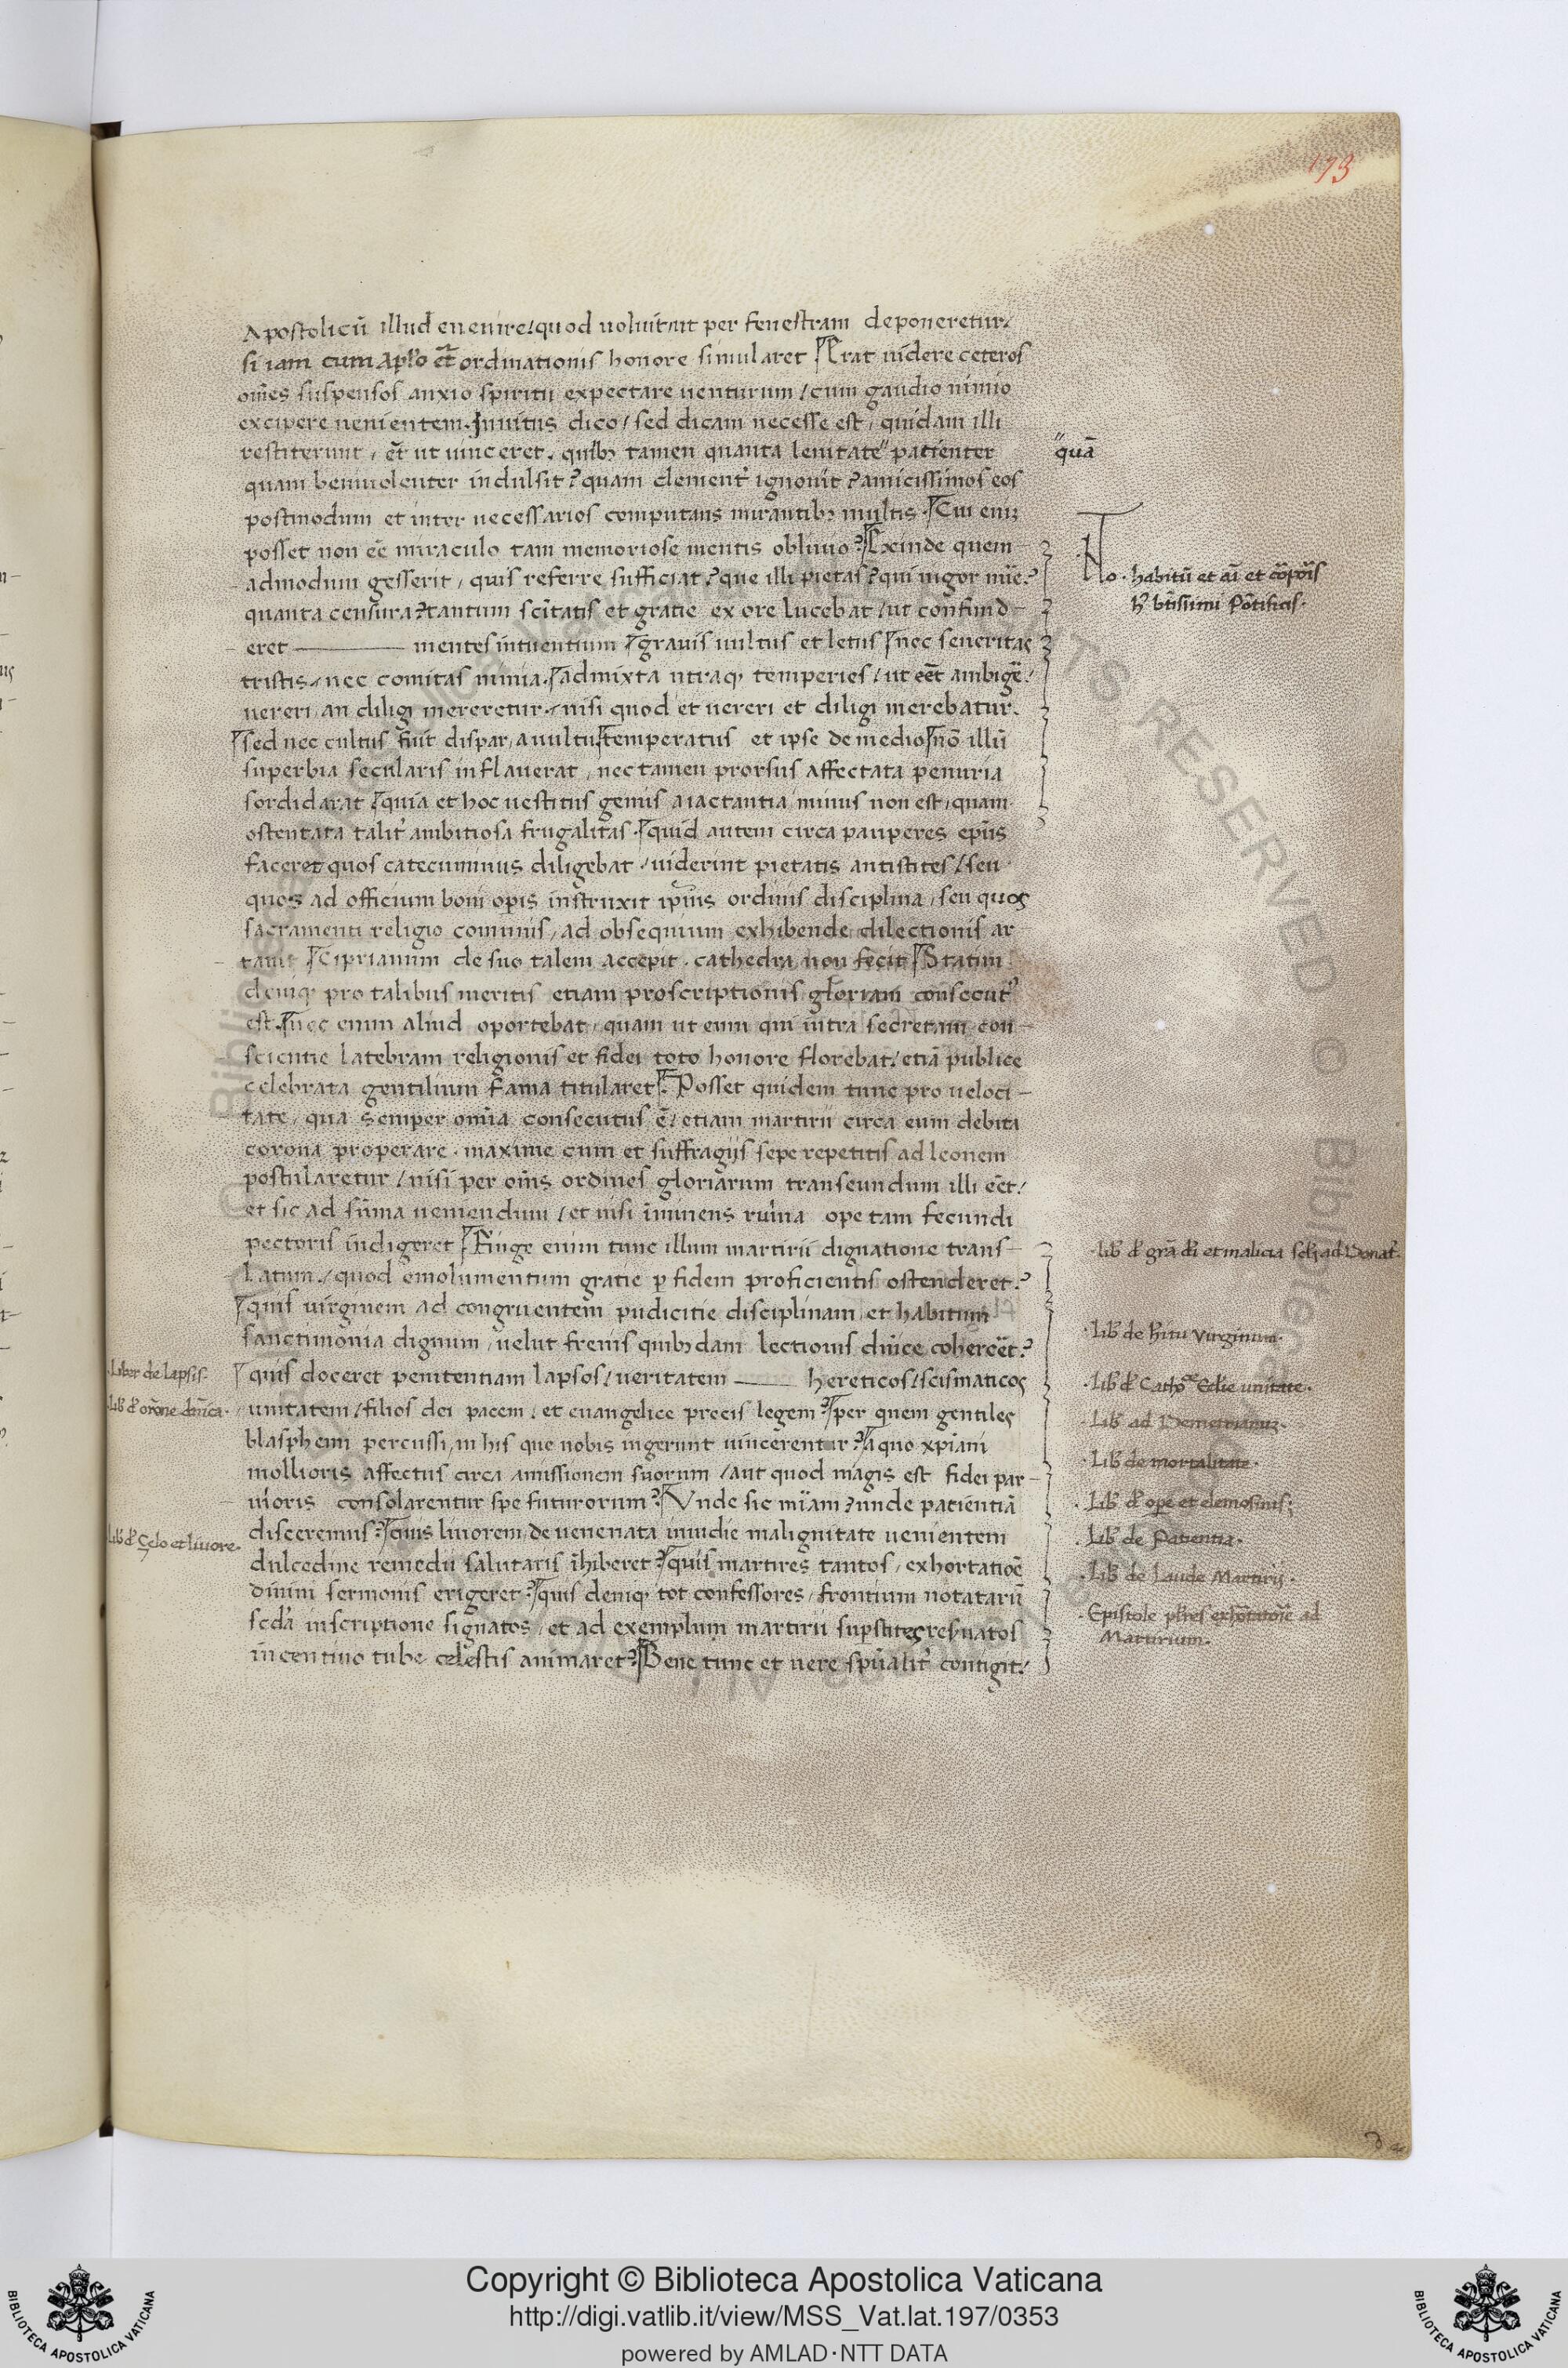 173
Apostolicū illud euenire / quod uoluit / ut per fenestram deponeretur /
si iam cum Apl'o et̄ ordinationis honore simularet Erat uidere ceteros
om̄es suspensos anxio spiritu expectare uenturum / cum gaudio nimio
excipere uenientem. Inuitus dico / sed dicam necesse est / quidam illi
restiterunt / et̄ ut uinceret. quib; tamen quanta lenitate" patienter
"quā
quam beniuolenter indulsit? quam clement' ignouit? amicissimos eos
postmodum et inter necessarios computans mirantib; multis. Cui eni;
posset non eē miraculo tam memoriose mentis obliuio? Exinde quem
admodum gesserit / quis referre sufficiat? que illi pietas? qui uigor mīe?
No. habitū et aī et corp̄oīs
h' btīssimi Pōtificis.
quanta censura? tantum scītatis et gratie ex ore lucebat / ut confund-
eret ——— mentes intuentium / grauis uultus et letus / nec seueritas
tristis / nec comitas nimia. admixta utraq, temperies / ut eēt ambigē /
uereri / an diligi mereretur / nisi quod et uereri et diligi merebatur.
sed nec cultus fuit dispar / a uultu temperatus et ipse de medio nō illū
superbia secularis inflauerat / nec tamen prorsus affectata penuria
sordidarat / quia et hoc uestitus genus a iactantia minus non est / quam
ostentata talit' ambitiosa frugalitas. quid autem circa pauperes ep̄us
faceret quos catecuminus diligebat / uiderint pietatis antistites / seu
quos ad officium boni op̄is instruxit ip̄ius ordinis disciplina / seu quos
sacramenti religio com̄unis / ad obsequium exhibende dilectionis ar
tauit Ciprianum de suo talem accepit. cathedra non fecit Statim
deniq, pro talibus meritis etiam proscriptionis gloriam consecut'
est. nec enim aliud oportebat / quam ut eum qui intra secretam con-
scientie latebram religionis et fidei toto honore florebat / etiā publice
celebrata gentilium fama titularet. Posset quidem tunc pro ueloci-
tate / qua semper om̄ia consecutus ē / etiam martirii circa eum debita
corona properare. maxime cum et suffragijs sepe repetitis ad leonem
postularetur / nisi per om̄s ordines gloriarum transeundum illi eēt /
et sic ad sūma ueniendum / et nisi īminens ruina ope tam fecundi
pectoris indigeret Finge enim tunc illum martirii dignatione trans-
.lib' d' grā dī et malicia seli; ad Donat'.
latum / quod emolumentum gratie p fidem proficientis ostenderet?
quis uirginem ad congruentem pudicitie disciplinam et habitum
.Lib' de h̄itu virginum.
sanctimonia dignum / uelut frenis quib;dam lectionis dn̄ice cohercēt?
.Liber de Lapsis.
quis doceret penitentiam lapsos / ueritatem —— hereticos / scismaticos
.Lib' d' Cathō Eccl'ie unitate.
.Lib' d' orōne dn̄ica.
unitatem / filios dei pacem / et euangelice precis legem? per quem gentiles
.Lib' ad Demetrianu;.
blasphemi percussi / in his que nobis ingerunt uincerentur? a quo xp̄iani
.Lib' de mortalitate.
mollioris affectus circa amissionem suorum / aut quod magis est fidei par-
uioris consolarentur spe futurorum? Vnde sic mīam? unde patientiā
.Lib' d' ope et elemosinis;
disceremus? quis liuorem de uenenata inuidie malignitate uenientem
.Lib' d' Çelo et liuore.
.Lib' de Patientia.
dulcedine remedii salutaris īhiberet? quis martires tantos / exhortatioē
.Lib' de Laude Martirij.
diuini sermonis erigeret? quis deniq, tot confessores / frontium notatarū
scd'a inscriptione signatos / et ad exemplum martirii supstites reseruatos
.Epistole pl'res exhōtatoīe ad
Marturium.
incentiuo tube celestis animaret? Bene tunc et uere spūalit' contigit /
Copyright © Biblioteca Apostolica Vaticana
http://digi.vatlib.it/view/MSS_Vat.lat.197/0353
powered by AMLAD·NTT DATA
BIBLIOTECA APOSTOLICA VATICANA
BIBLIOTECA APOSTOLICA VATICANA